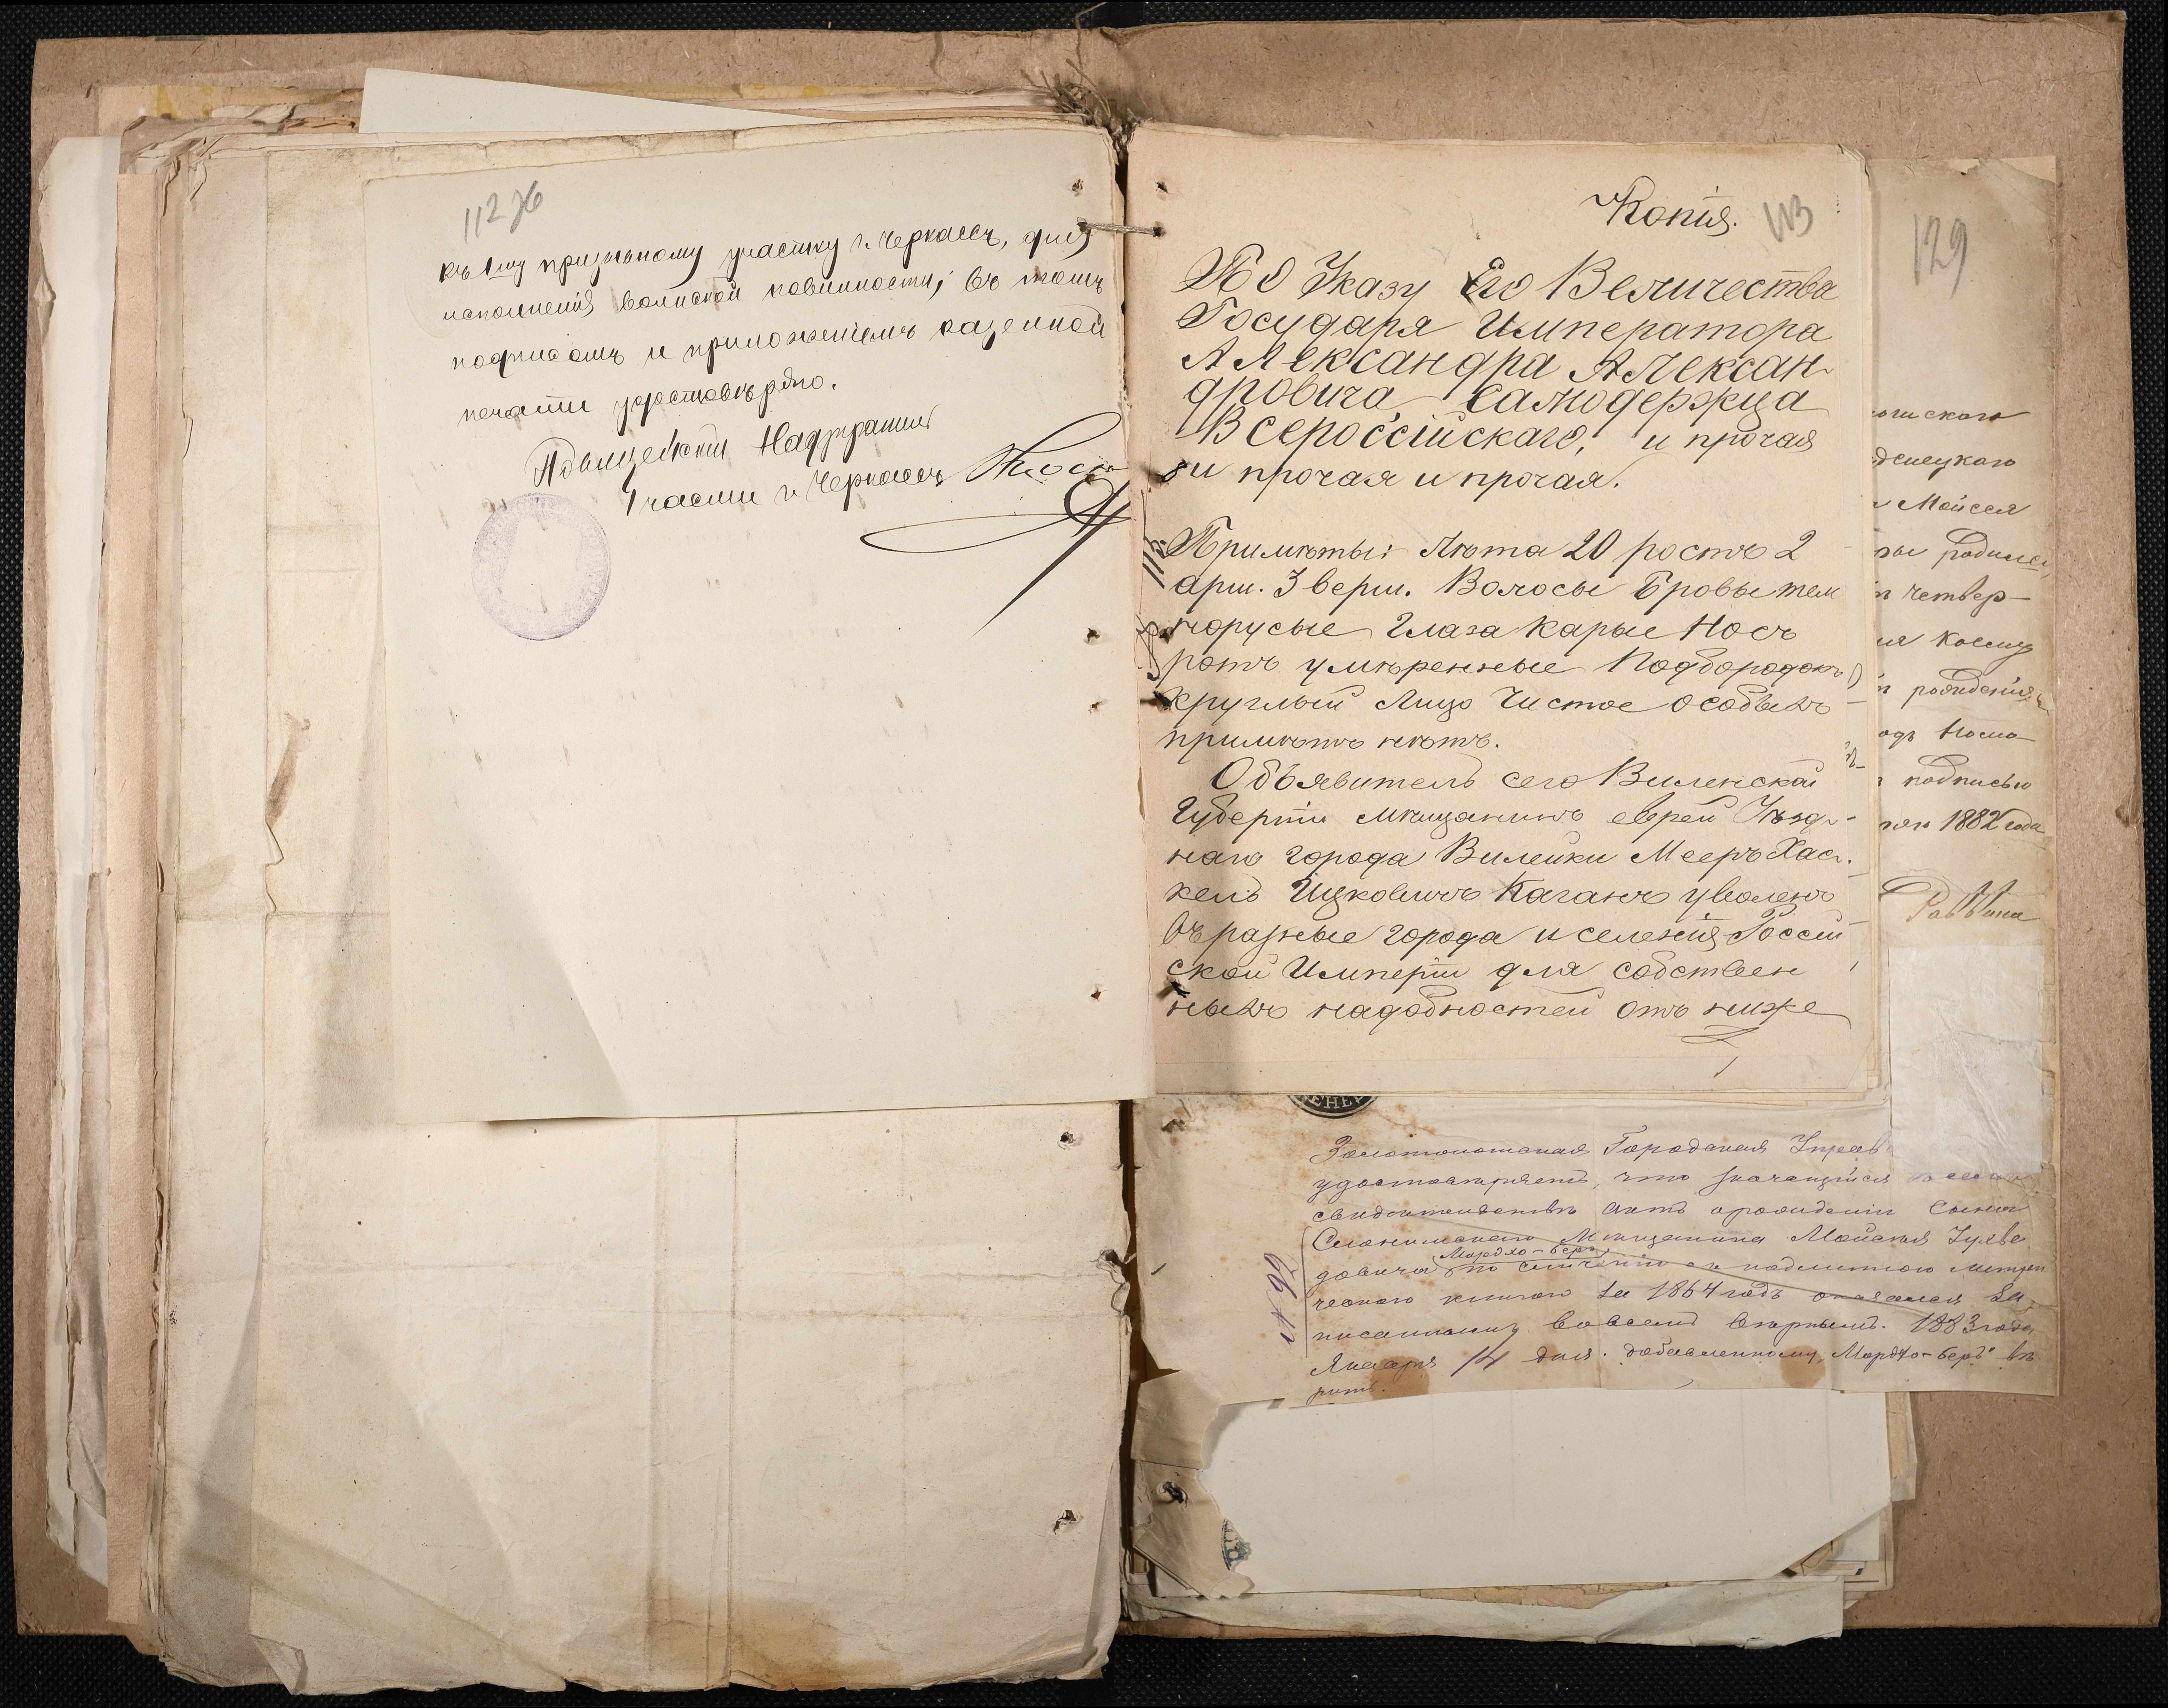 112 об
къ 1му призывному участку г. Черкассъ, для
исполненія воинской повинности; въ томъ
подписомъ и приложеніемъ казенной
печати удостовѣряю.
Полицейскій Надзиратель
1 части г. Черкассъ
Копія.
113
По Указу Его Величества
Государя Императора
Александра Алексан-
дровича Самодержца
Всероссійскаго, и прочая
и прочая и прочая.
Примѣты: Лѣта 20 ростъ 2
арш. 3 верш. Волосы Бровы тем
норусые Глаза Карые Носъ
ротъ умѣренные Подбородокъ
круглый Лицо Чистое особыхъ
примѣтъ нѣтъ.
Объявитель сего Виленской
Губерніи мѣщанинъ еврей Уѣзд-
наго города Вилейки Мееръ Хас-
кель Ицковичъ Каганъ уволенъ
въ разные города и селенія Россій
ской Имперіи для собствен
ныхъ надобностей отъ ниже
129
Мойсея
родился
четвер-
рожденія
подписью
1882 года
Раввина
ЕНЕР
Золотоношская Городская Управ
удостовѣряетъ, что значащійся
свидѣтельствѣ актъ о рожденіи сына
Слонимскаго Мѣщанина Мойсея Гулье
Мордхо-Беръ
довича по сличенію съ подлинною метри
ческою книгою за 1864 годъ оказался за
писаннымъ во всемъ вѣрнымъ. 1883 года
Января 14 дня. добавленному "Мордхо-Беръ" вѣ
рить.
№ 92